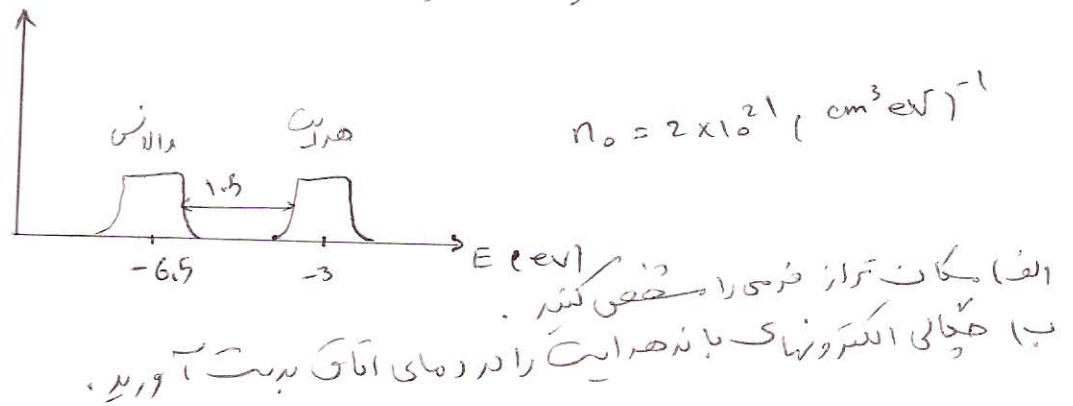 والانس
هدایت
n₀ = 2×10²¹ (cm³ eV)⁻¹
1.5
-6.5
-3
E (eV)
الف) مکان تراز فرمی را مشخص کنید.
ب) چگالی الکترونهای باند هدایت را در دمای اتاق بدست آورید.